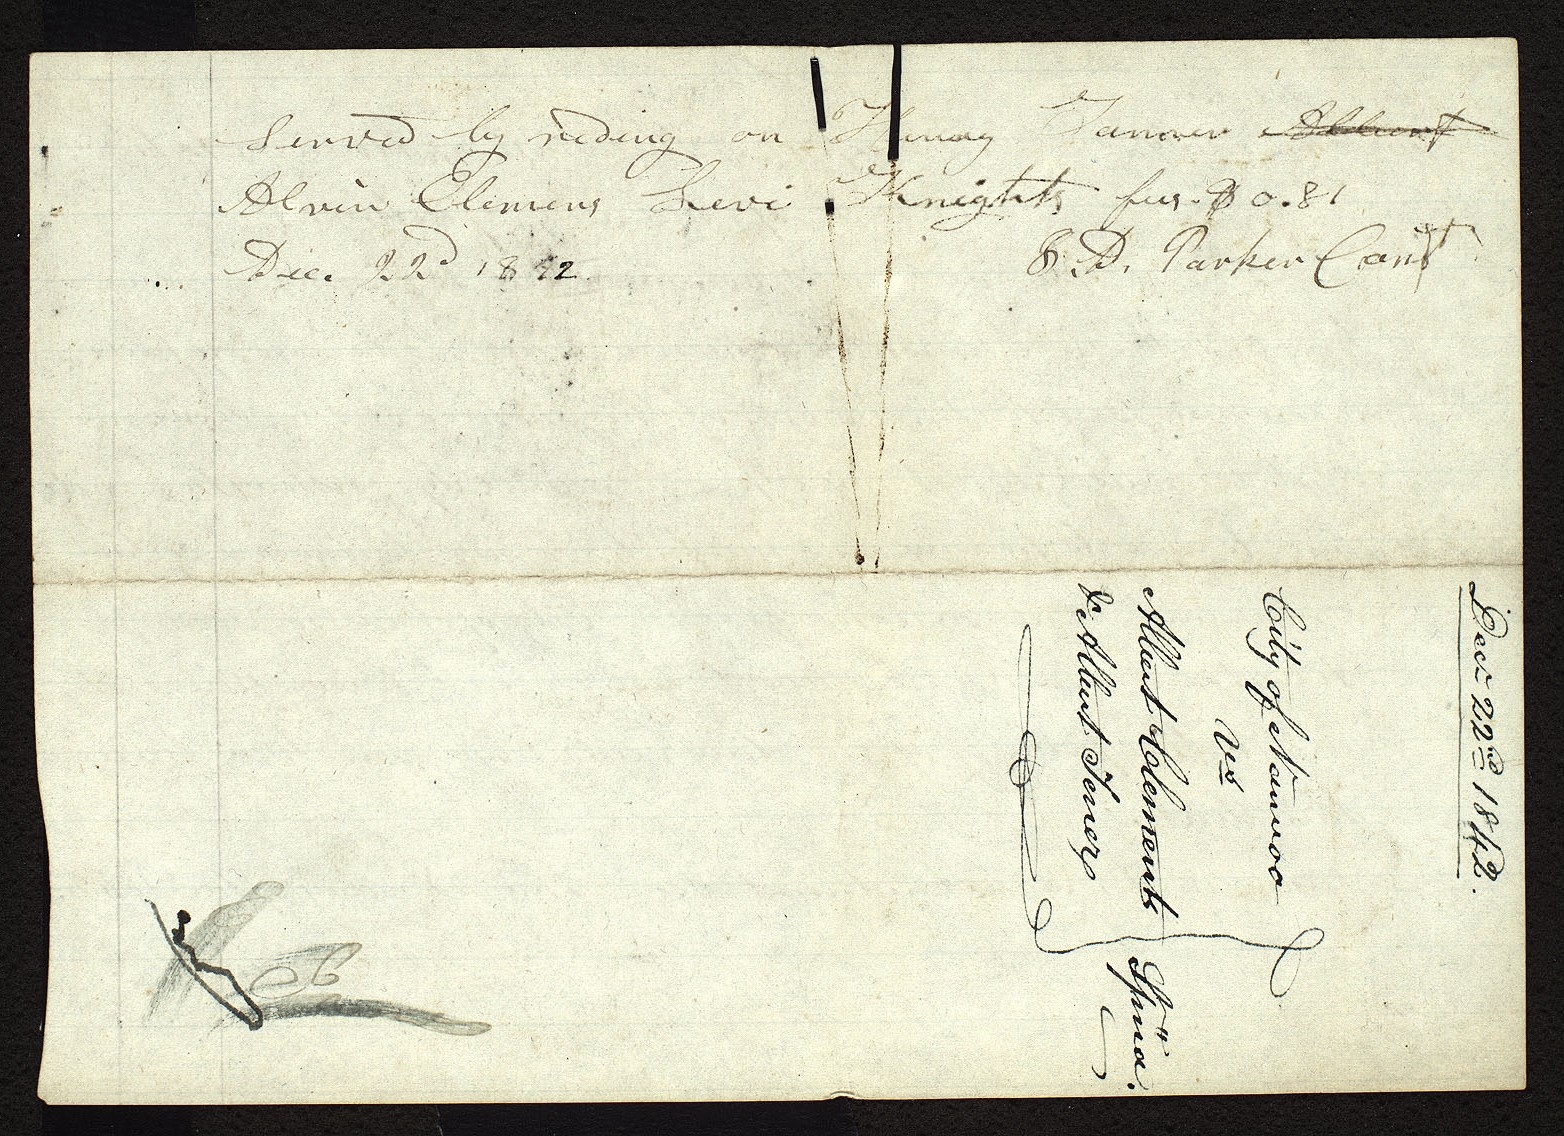 Servd by reding on Henry Tanner Albert
Alvin Clemens Levi Knights fees. $0.81
Dec. 22d 1842 S. D. Parker Const
Decr 22nd 1842.
City of Nauvoo
Vs
Albert Clements
& Albert Tener
Spna.